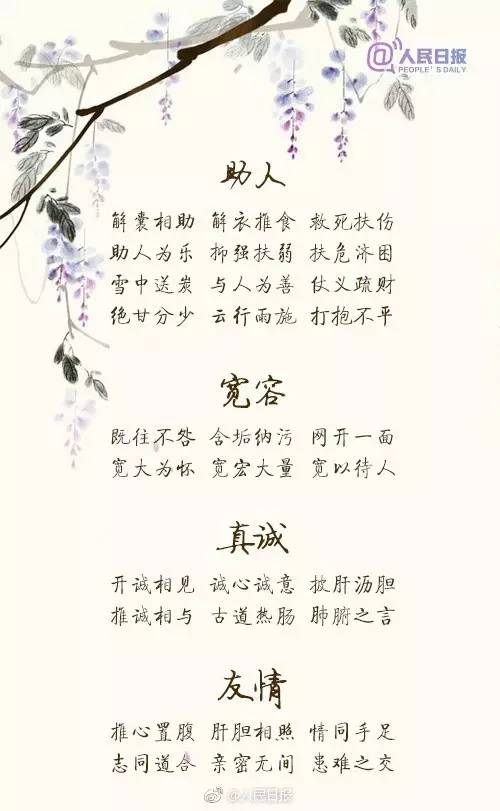 @人民日报
PEOPLE'S DAILY
助人
解囊相助 解衣推食 救死扶伤
助人为乐 抑强扶弱 扶危济困
雪中送炭 与人为善 仗义疏财
绝甘分少 云行雨施 打抱不平
宽容
既往不咎 含垢纳污 网开一面
宽大为怀 宽宏大量 宽以待人
真诚
开诚相见 诚心诚意 披肝沥胆
推诚相与 古道热肠 肺腑之言
友情
推心置腹 肝胆相照 情同手足
志同道合 亲密无间 患难之交
@人民日报